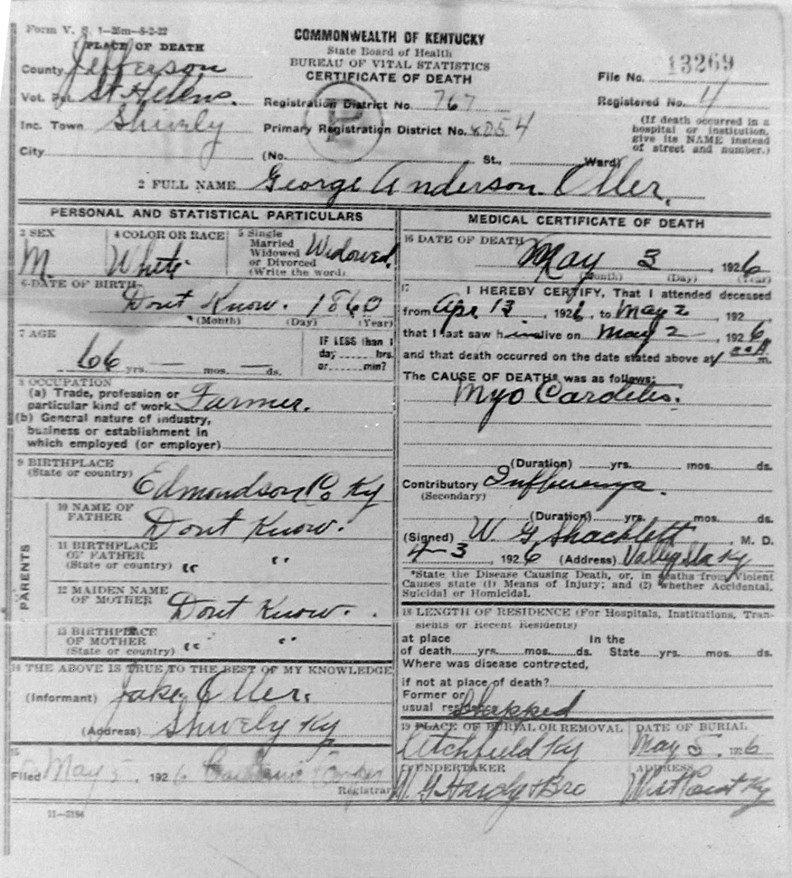 Form V. S. 1-25m-8-2-22
PLACE OF DEATH
County Jefferson
Vot. Pct St Helens.
Inc. Town Shively
City
COMMONWEALTH OF KENTUCKY
State Board of Health
BUREAU OF VITAL STATISTICS
CERTIFICATE OF DEATH
Registration District No. 767
Primary Registration District No. 8054
(No. St., Ward)
File No. 13269
Registered No. 4
(If death occurred in a
hospital or institution,
give its NAME instead
of street and number.)
2 FULL NAME George Anderson Oller,
PERSONAL AND STATISTICAL PARTICULARS
3 SEX
M.
4 COLOR OR RACE
White
5 Single
Married
Widowed
or Divorced
(Write the word)
Widowed.
6 DATE OF BIRTH
Dont Know. 1860
(Month) (Day) (Year)
7 AGE
66 yrs. — mos. — ds.
IF LESS than 1
day hrs.
or min?
8 OCCUPATION
(a) Trade, profession or
particular kind of work Farmer.
(b) General nature of industry,
business or establishment in
which employed (or employer)
9 BIRTHPLACE
(State or country)
Edmondson Co Ky
PARENTS
10 NAME OF
FATHER
Dont Know.
11 BIRTHPLACE
OF FATHER
(State or country) " "
12 MAIDEN NAME
OF MOTHER
Dont Know.
13 BIRTHPLACE
OF MOTHER
(State or country) " "
14 THE ABOVE IS TRUE TO THE BEST OF MY KNOWLEDGE
(Informant) Jake Oller.
(Address) Shively Ky
15
Filed May 5, 1926
Registrar
11-3184
MEDICAL CERTIFICATE OF DEATH
16 DATE OF DEATH
May 3, 1926
(Month) (Day) (Year)
17 I HEREBY CERTIFY, That I attended deceased
from Apr 13, 1926, to May 2, 192
that I last saw him alive on May 2, 1926
and that death occurred on the date stated above at m.
The CAUSE OF DEATH* was as follows:
Myo Cardites.
(Duration) yrs. mos. ds.
Contributory
(Secondary)
(Duration) yrs. mos. ds.
(Signed) W. G. Shacklett, M. D.
4-3, 1926 (Address) Valley Sta Ky
*State the Disease Causing Death, or, in deaths from Violent
Causes state (1) Means of Injury; and (2) whether Accidental,
Suicidal or Homicidal.
18 LENGTH OF RESIDENCE (For Hospitals, Institutions, Tran-
sients or Recent Residents)
at place In the
of death yrs. mos. ds. State yrs. mos. ds.
Where was disease contracted,
if not at place of death?
Former or
usual residence Shipped
19 PLACE OF BURIAL OR REMOVAL
Litchfield Ky
DATE OF BURIAL
May 5, 1926
20 UNDERTAKER
W. G Hardy & Bro
ADDRESS
West Point Ky